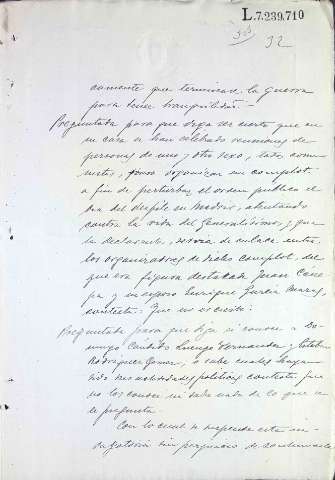 L.7.239.710
32
camente que terminase la guerra
para tener tranquilidad.-
Preguntada para que diga ser cierto que en
su casa se han celebrado reuniones de
personas de uno y otro sexo, todos comu-
nistas, para organizar un complot
a fin de perturbar el orden publico el
dia del desfile en Madrid, atentando
contra la vida del Generalísimo, y que
la declarante, servia de enlace entre
los organizadores de dicho complot, del
que era figura destacada Juan Cane-
pa y su esposo Enrique Garcia
contesta: Que no es cierto.
Preguntada para que diga si conoce a Do-
mingo Candido Luengo Fernandez y Esteban
Rodriguez y sabe cuales hayan
sido sus actividades politicas contesta que
no los conoce ni sabe nada de lo que se
le pregunta.
Con lo cual se suspende esta in-
dagatoria sin perjuicio de continuarla